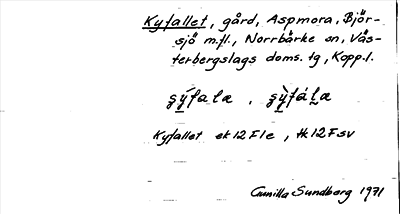 Kyfallet, gård, Aspmora, Björ-
sjö m.fl., Norrbärke sn, Väs-
terbergslags doms. tg, Kopp.l.
ʂý̲fala , ʂỳ̲fála̲
Kyfallet ek 12 F 1e , Hk 12 F SV
Gunilla Sundberg 1971